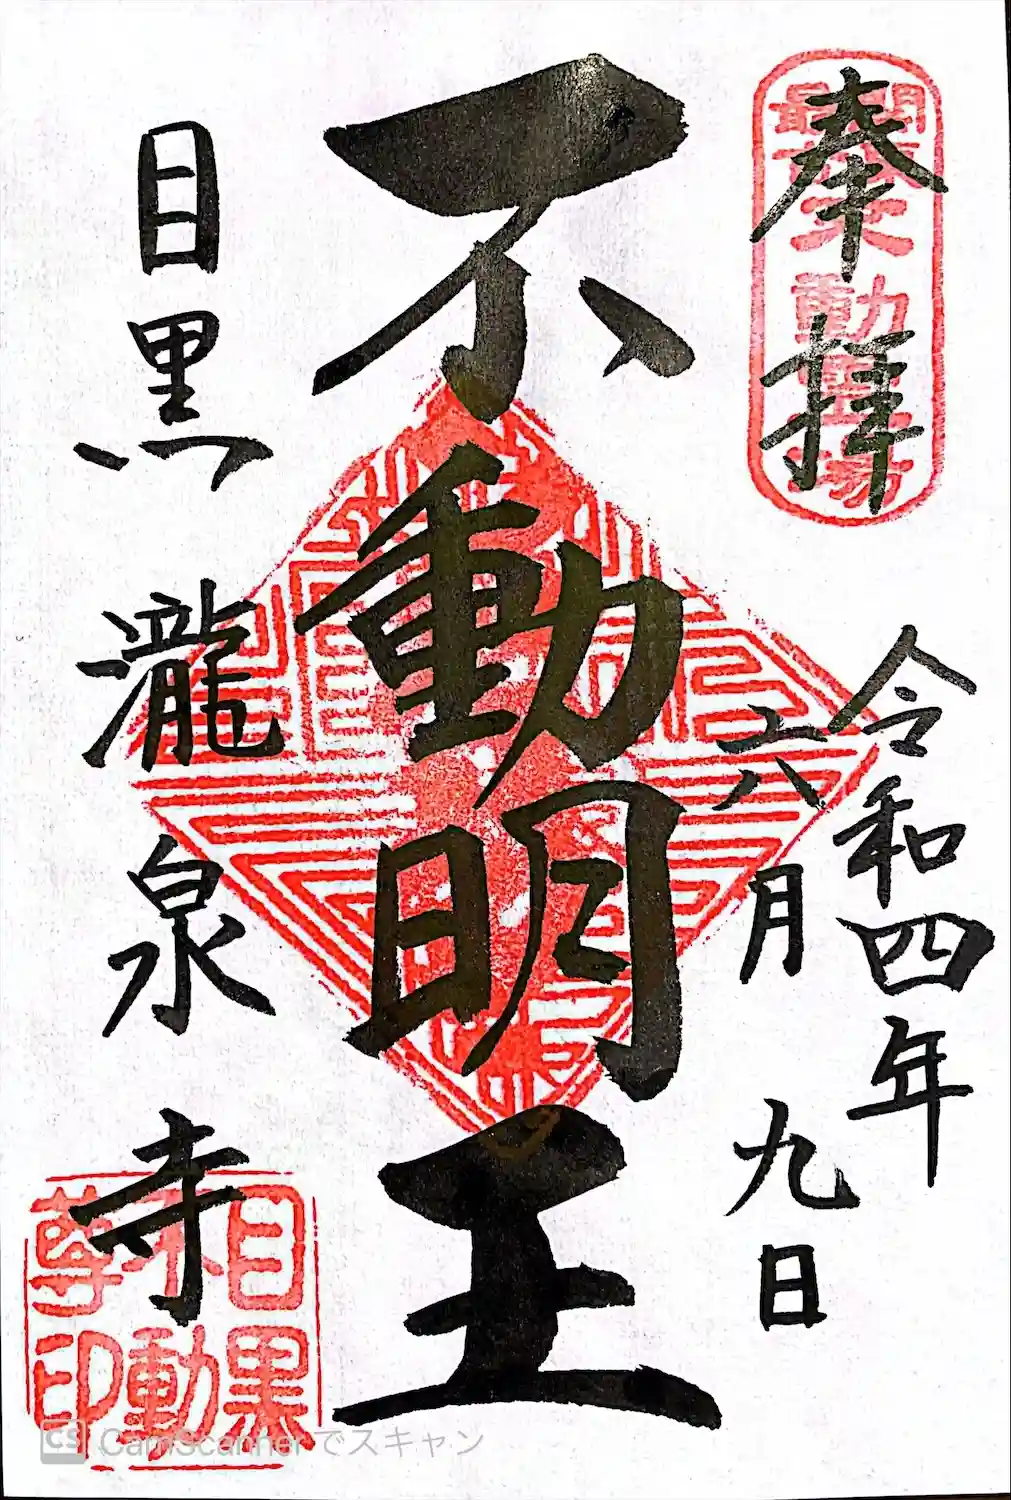 奉拝
關東最古不動霊場
令和四年
六月九日
不動明王
目黒瀧泉寺
目黒
不動
尊印
CS CamScanner でスキャン